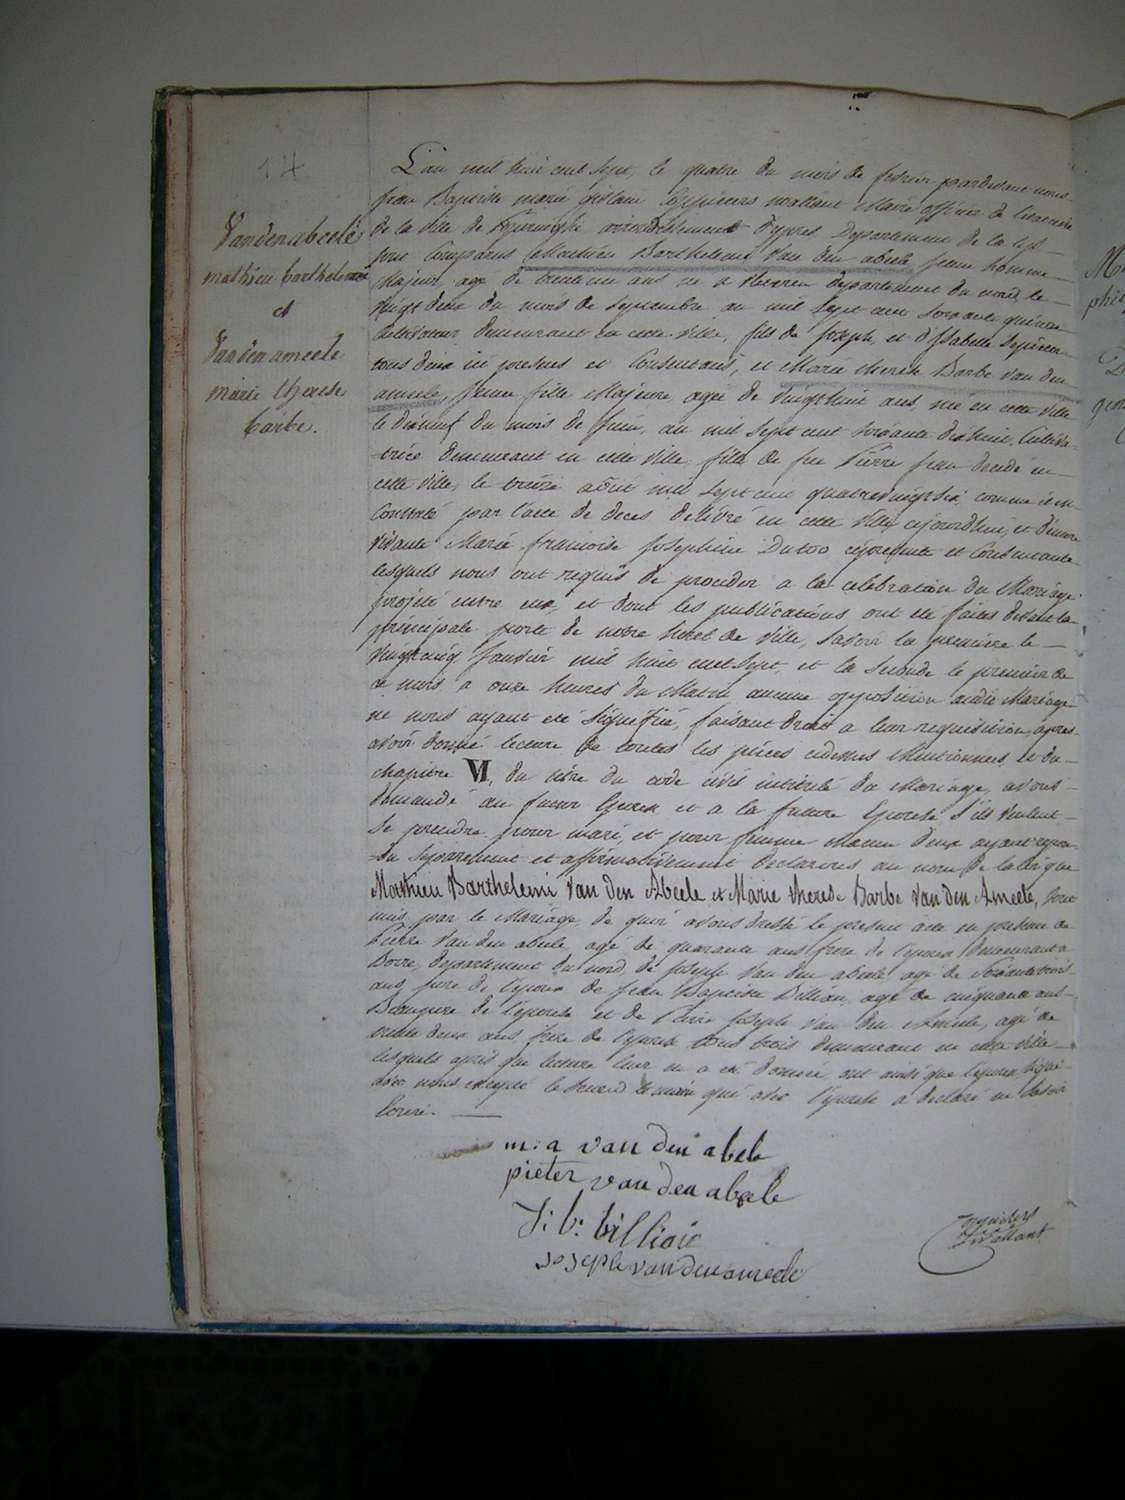 14
Vandenabeele
mathieu barthelemi
et
Vandenameele
marie therese
barbe.
L'an mil huit cent sept, le quatre du mois de fevrier pardevant nous
Jean Baptiste marie Maire officier de
de la ville de arrondissement d'ypres Departement de la Lys
sont Comparus Mathieu Barthelemi Van den abeele jeune homme
Majeur, agé de trente un ans né a departement du nord, le
vingt deux du mois de septembre an mil sept cent soixante quinze
Cultivateur demeurant en cette ville, fils de Joseph, et d'Isabelle
tous deux ici presens et Consentans, et Marie therese Barbe Van den
ameele, jeune fille Majeure, agée de vingthuit ans, née en cette ville
le dixneuf du mois de Juin, an mil sept cent soixante dixhuit, Cultiva-
-trice demeurant en cette ville, fille de feu Pierre jean decedé en
cette ville, le treize août mil sept cent quatrevingtsix comme il est
Constaté par l'acte de deces delivré en cette ville cejourdhui, et d'encore
vivante Marie francoise Josephine cipresente et Consentante
lesquels nous ont requis de proceder a la celebration du Mariage
projeté entre eux, et dont les publications ont été faites devant la
principale porte de notre hotel de ville, Savoir la premiere le
vingtcinq Janvier mil huit cent sept, et la Seconde le premier de
ce mois, a onze heures du Matin aucune opposition audit Mariage
ne nous ayant été signifiée, faisant droit a leur requisition, apres
avoir donné lecture de toutes les pièces cidessus Mentionnées, et du
chapitre VI, du titre du code civil intitulé du Mariage, avons
demandé au futur Epoux et a la future Epouse s'ils veulent
se prendre pour mari, et pour femme chacun deux ayant repon-
-du separement et affirmativement declarons au nom de la loi que
Mathieu Barthelemi Van den Abeele et Marie therese Barbe Van den Ameele, sont
unis par le Mariage, de quoi avons dressé le present acte en presence de
Pierre Van den abeele, agé de quarante ans frere de l'epoux demeurant a
Borre, departement du nord, de Joseph Van den abeele, agé de soixante trois
ans, pere de l'epoux de Jean Baptiste Billiau, agé de cinquante ans
Beaupere de l'epouse et de Pierre Joseph Van den Ameele, agé de
trente deux ans, frere de l'epouse tous trois demeurant en cette ville
lesquels après que lecture leur en a été donnée, ont ainsi que l'epoux, signé
avec nous excepté le second temoin qui avec l'epouse a declaré ne savoir
ecrire.
m: a van den abele
pieter van den abeele
J: b: billiau
joseph van den ameele